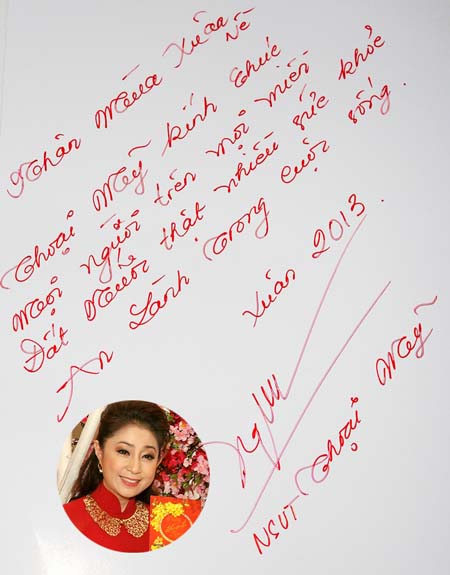 Nhân Mùa Xuân Về
Thoại Mỹ kính chúc
mọi người trên mọi miền
Đất Nước thật nhiều sức khỏe
An Lành trong cuộc sống.
Xuân 2013
NSƯT Thoại Mỹ